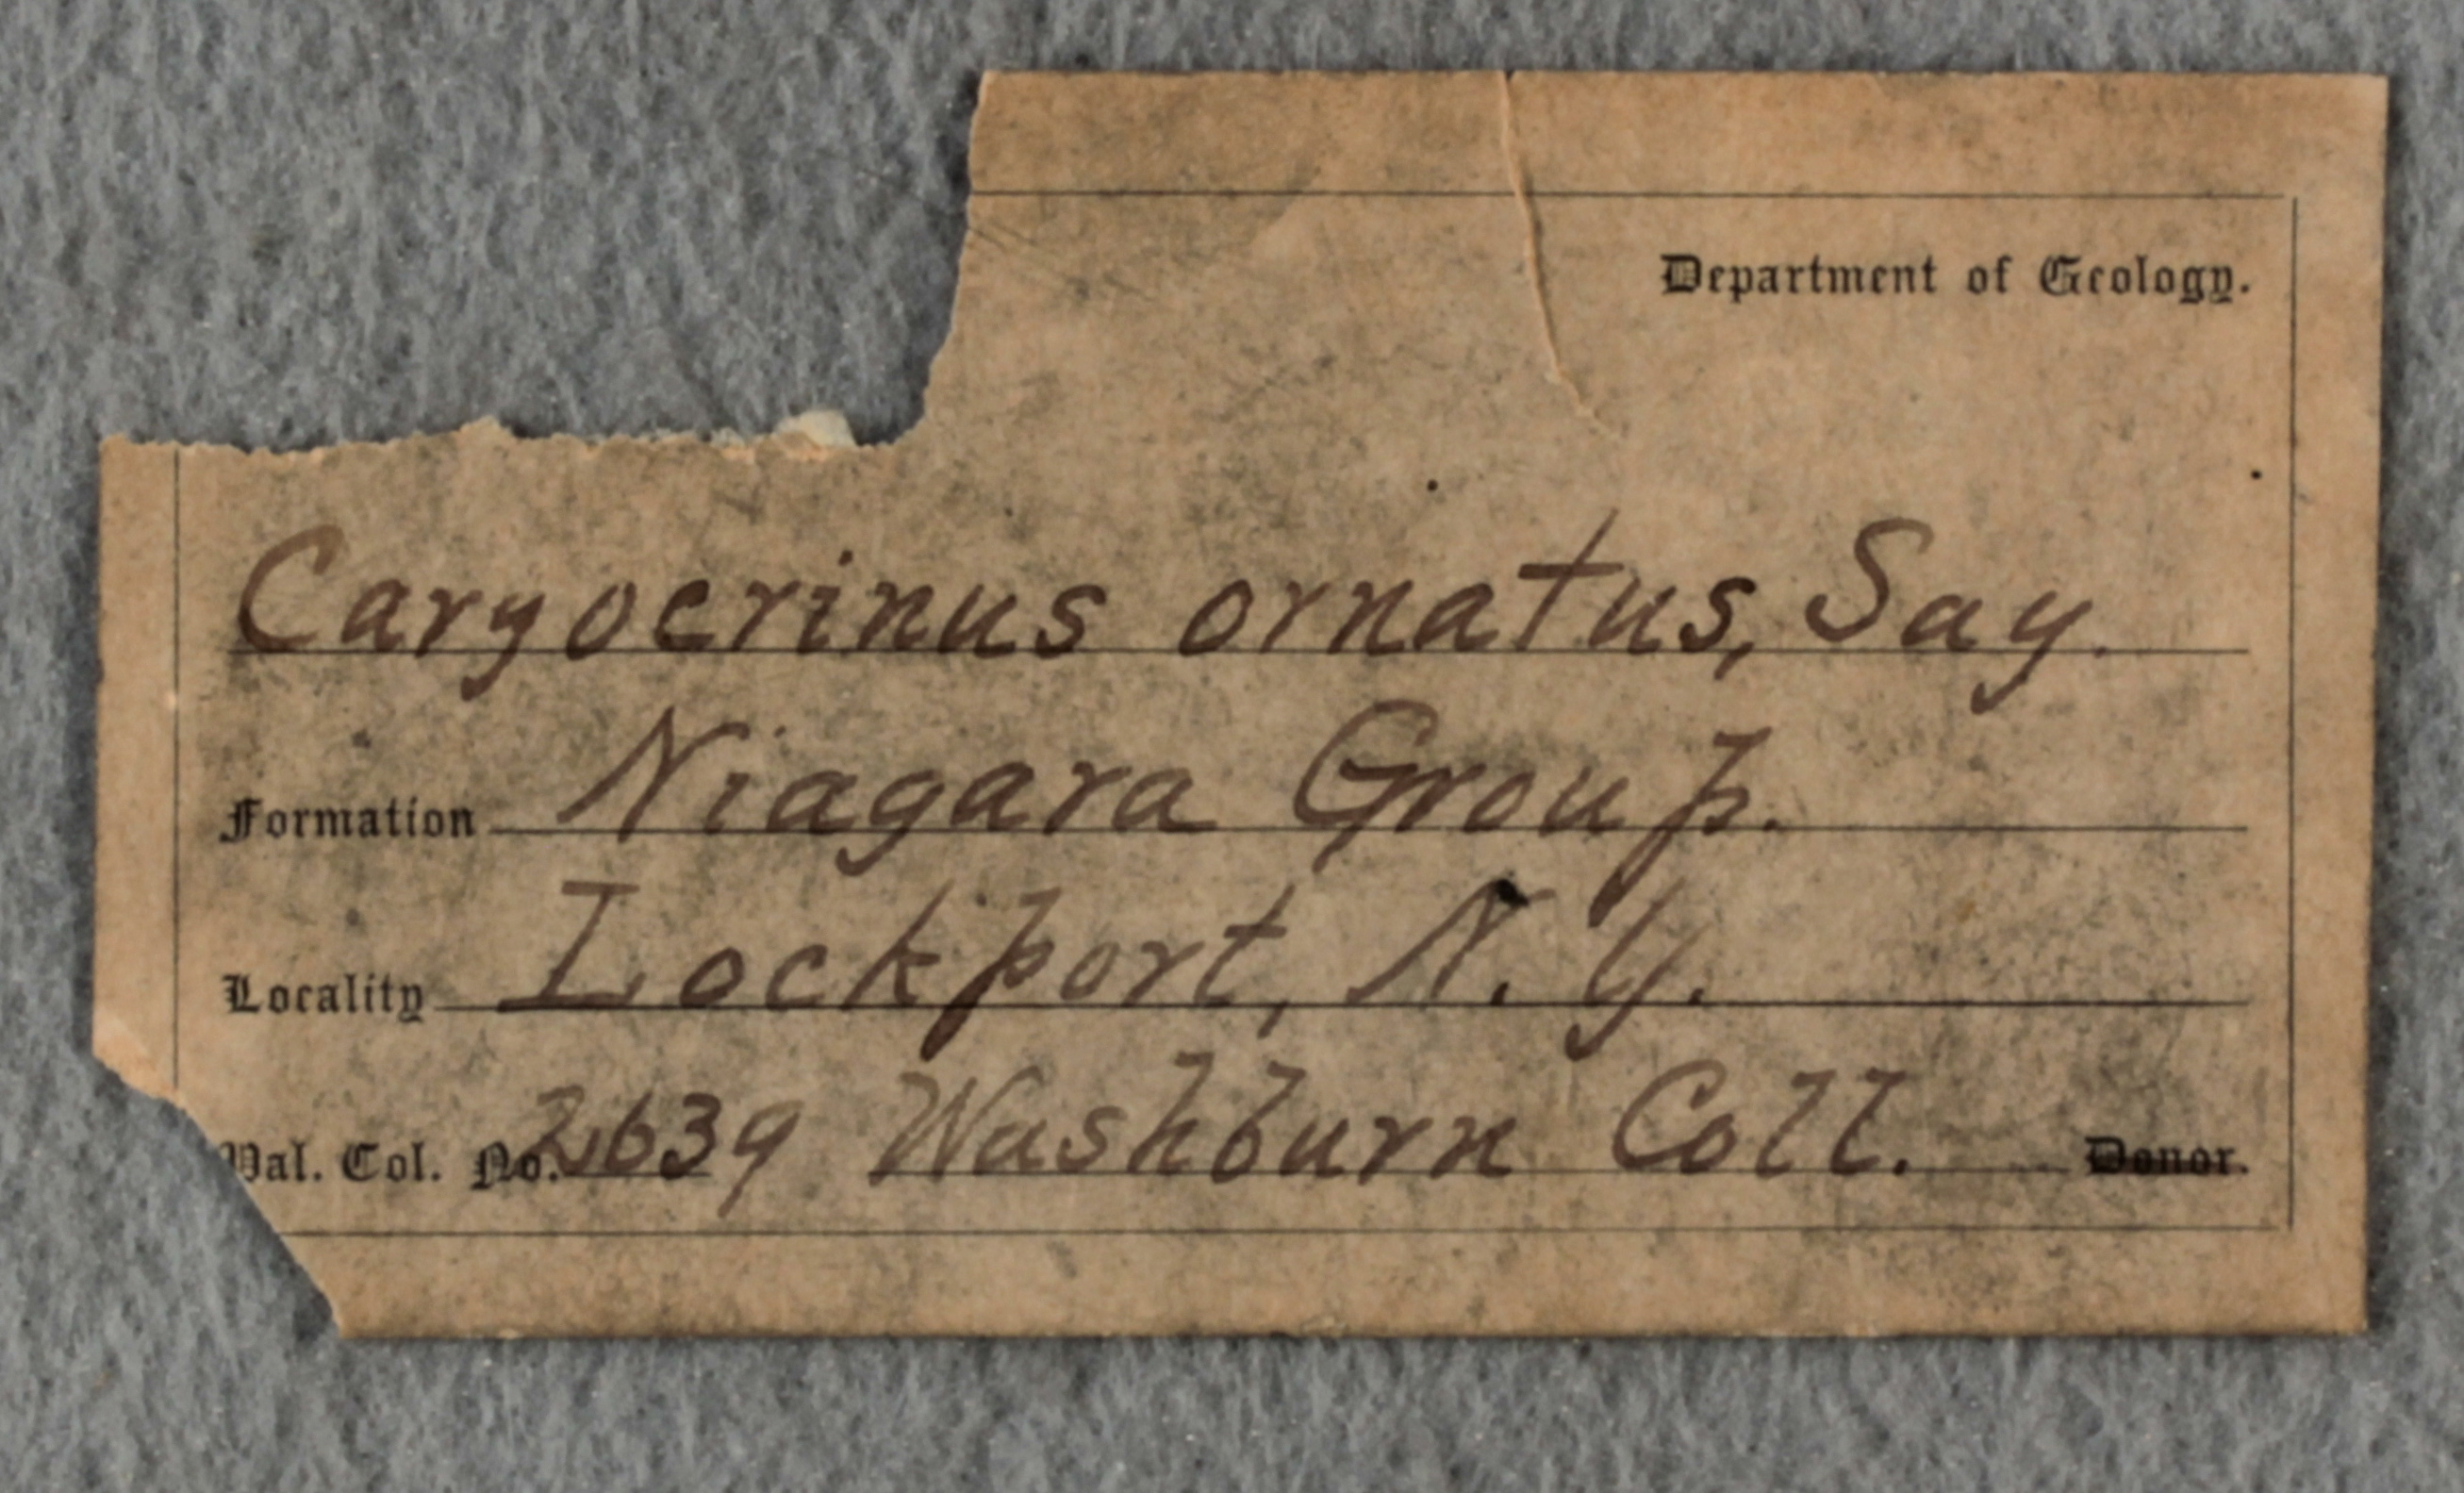 Department of Geology.
Caryocrinus ornatus, Say.
Formation Niagara Group.
Locality Lockport, N. Y.
Pal. Col. No. 2639 Washburn Coll. Donor.